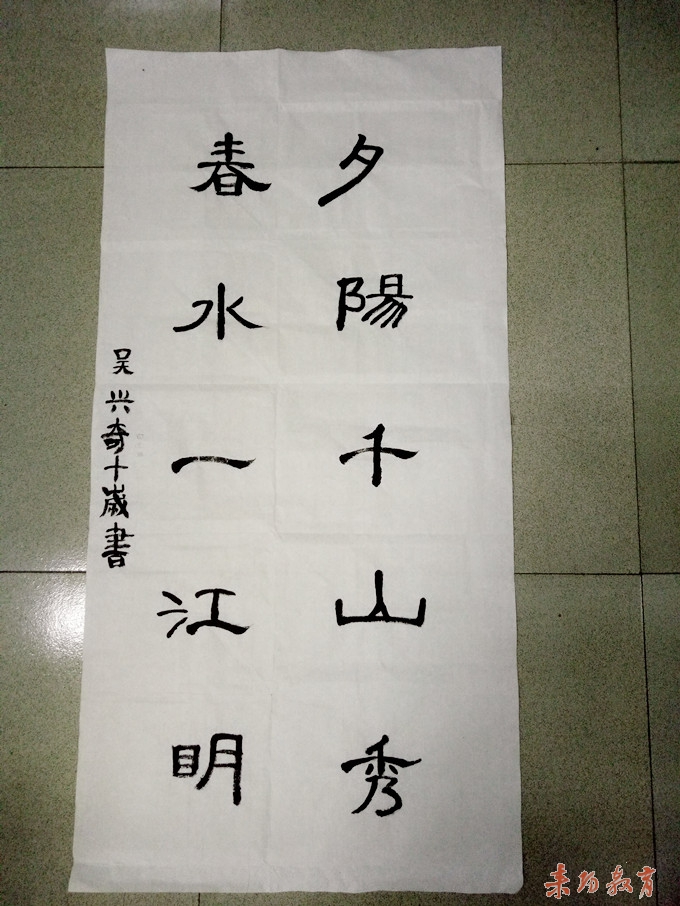 夕陽千山秀
春水一江明
吴兴奇十歲書
耒阳教育